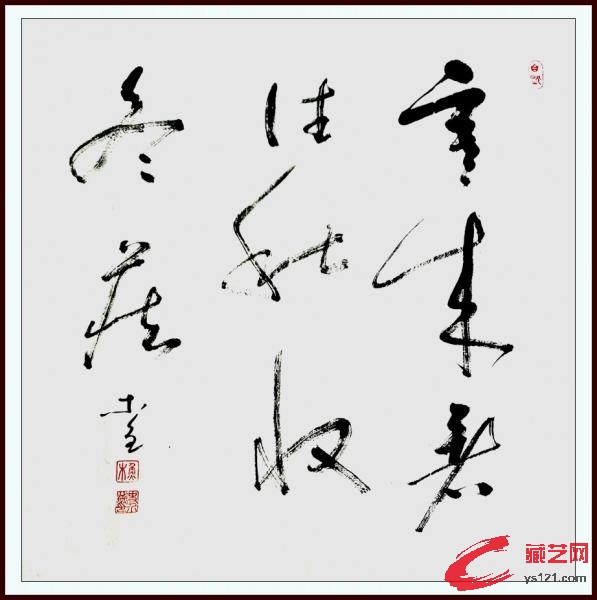 寒来暑
往秋收
冬藏
藏艺网
ys121.com